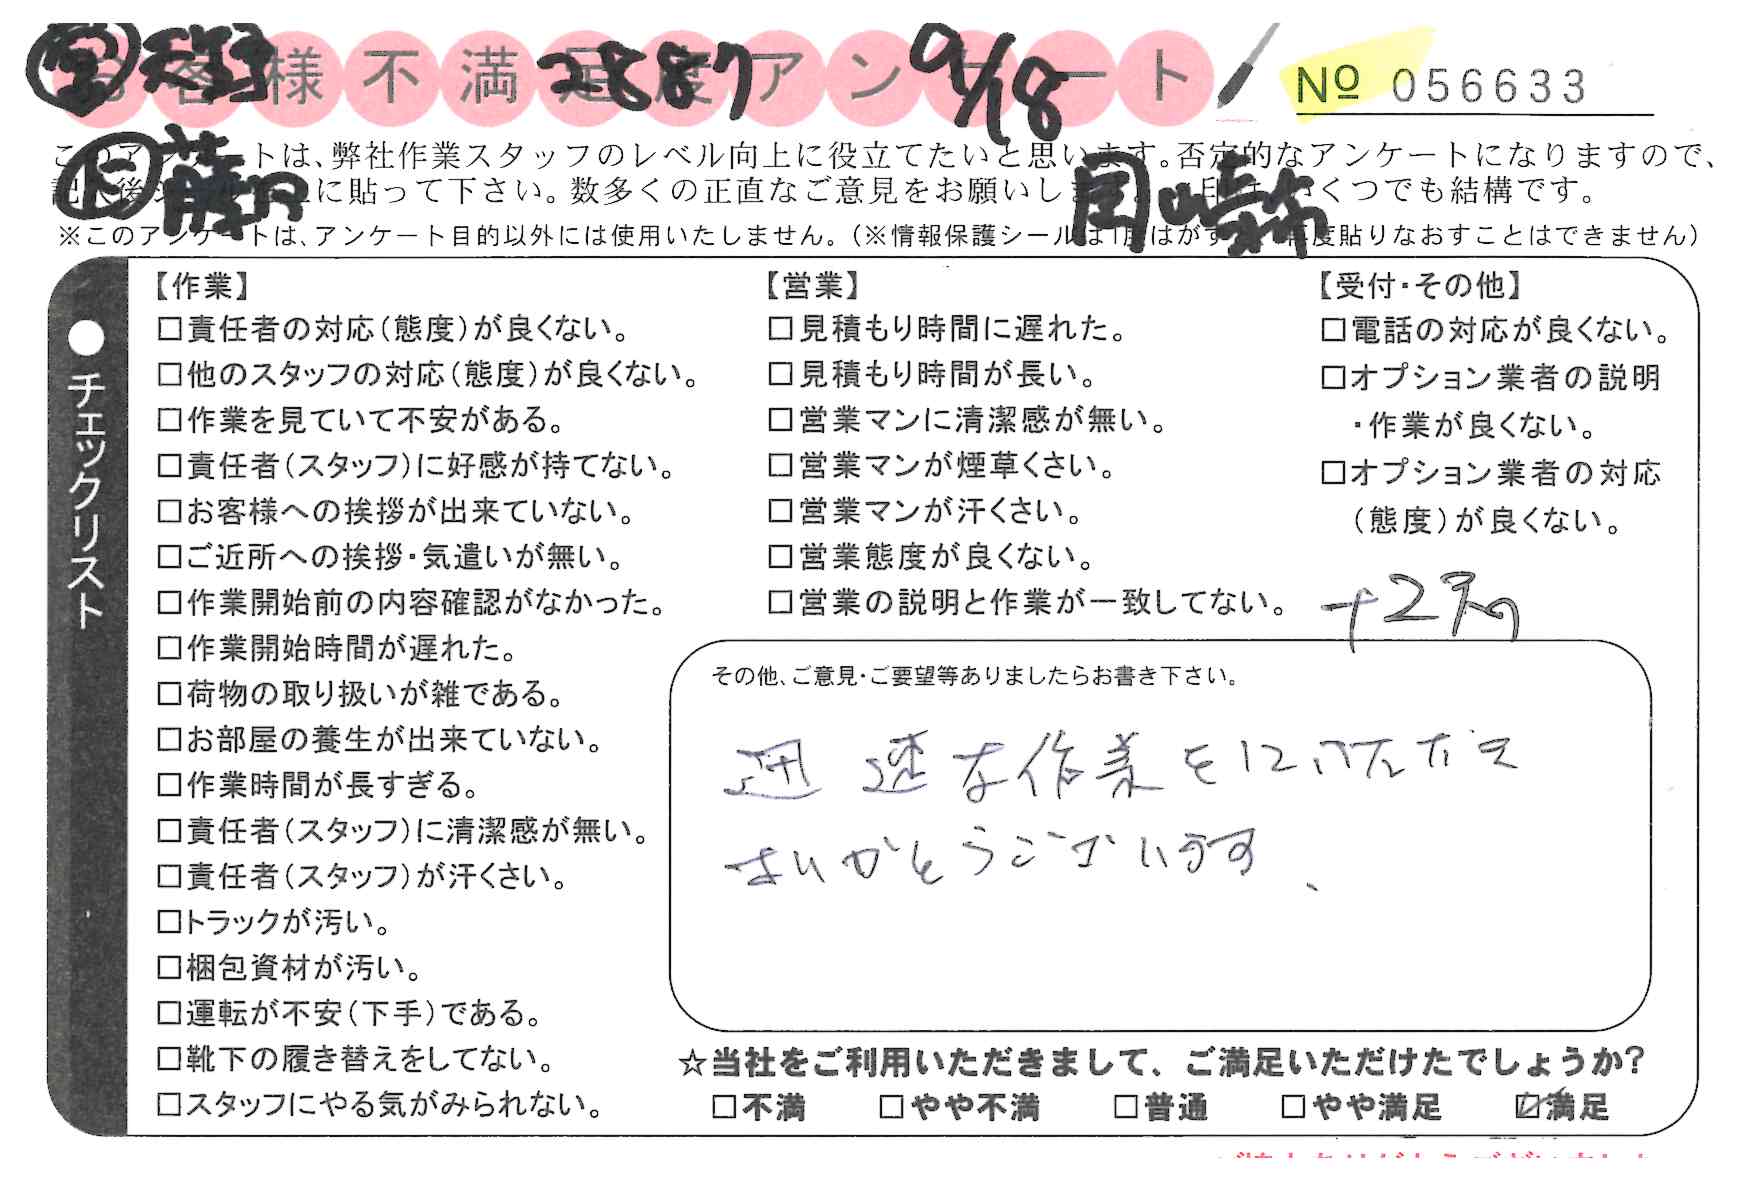 お客様不満足度アンケート
営 天野 2887 9/18
№ 056633
このアンケートは、弊社作業スタッフのレベル向上に役立てたいと思います。否定的なアンケートになりますので、
記入後シールを上に貼って下さい。数多くの正直なご意見をお願いします。
岡崎
※このアンケートは、アンケート目的以外には使用いたしません。(※情報保護シールは1度はがすと、再度貼りなおすことはできません)
●チェックリスト
【作業】
□責任者の対応(態度)が良くない。
□他のスタッフの対応(態度)が良くない。
□作業を見ていて不安がある。
□責任者(スタッフ)に好感が持てない。
□お客様への挨拶が出来ていない。
□ご近所への挨拶・気遣いが無い。
□作業開始前の内容確認がなかった。
□作業開始時間が遅れた。
□荷物の取り扱いが雑である。
□お部屋の養生が出来ていない。
□作業時間が長すぎる。
□責任者(スタッフ)に清潔感が無い。
□責任者(スタッフ)が汗くさい。
□トラックが汚い。
□梱包資材が汚い。
□運転が不安(下手)である。
□靴下の履き替えをしてない。
□スタッフにやる気がみられない。
【営業】
□見積もり時間に遅れた。
□見積もり時間が長い。
□営業マンに清潔感が無い。
□営業マンが煙草くさい。
□営業マンが汗くさい。
□営業態度が良くない。
□営業の説明と作業が一致してない。
【受付・その他】
□電話の対応が良くない。
□オプション業者の説明
・作業が良くない。
□オプション業者の対応
(態度)が良くない。
その他、ご意見・ご要望等ありましたらお書き下さい。
迅速な作業をいただき
ありがとうございます、
☆当社をご利用いただきまして、ご満足いただけたでしょうか?
□不満 □やや不満 □普通 □やや満足 ☑満足